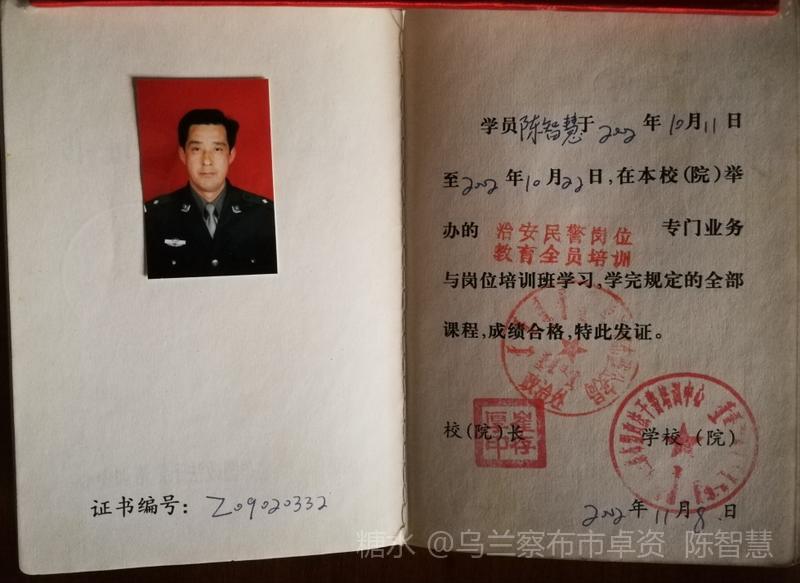 证书编号：Z09020332
学员陈智慧于2002年10月11日
至2002年10月22日，在本校(院)举
办的 治安民警岗位 专门业务
教育全员培训
与岗位培训班学习，学完规定的全部
课程，成绩合格，特此发证。
校(院)长
学校（院）
2002年11月8日
糖水 @乌兰察布市卓资 陈智慧